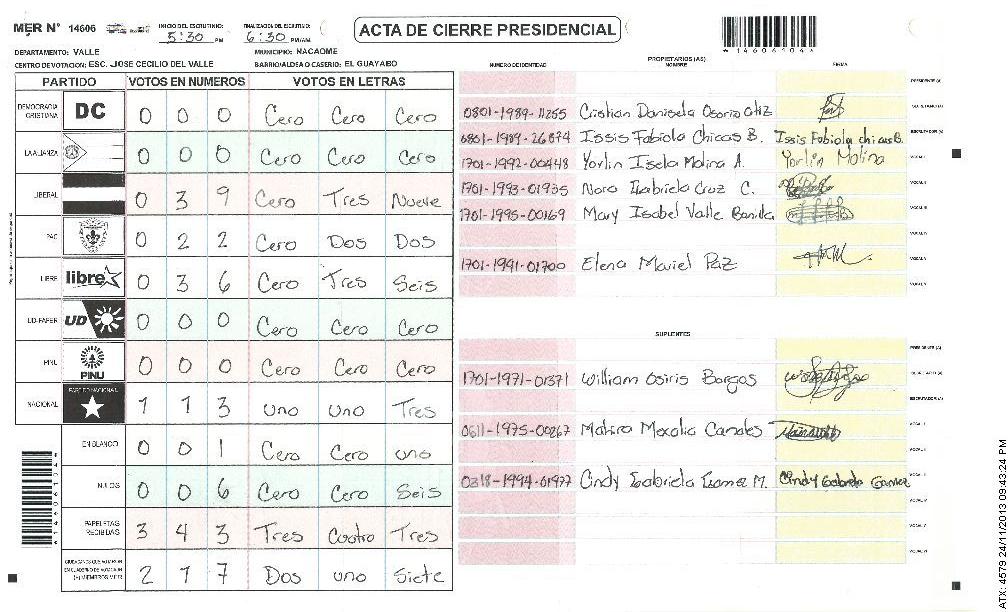 MER N° 14606
INICIO DEL ESCRUTINIO: 5:30 PM
FINALIZACION DEL ESCRUTINIO: 6:30 PM/AM
ACTA DE CIERRE PRESIDENCIAL
DEPARTAMENTO: VALLE MUNICIPIO: NACAOME
CENTRO DE VOTACION: ESC. JOSE CECILIO DEL VALLE BARRIO/ALDEA O CASERIO: EL GUAYABO
PARTIDO VOTOS EN NUMEROS VOTOS EN LETRAS
DEMOCRACIA CRISTIANA DC 0 0 0 Cero Cero Cero
LA ALIANZA 0 0 0 Cero Cero Cero
LIBERAL 0 3 9 Cero Tres Nueve
PAC 0 2 2 Cero Dos Dos
LIBRE libre 0 3 6 Cero Tres Seis
UD-FAPER UD 0 0 0 Cero Cero Cero
PINU PINU 0 0 0 Cero Cero Cero
NACIONAL PARTIDO NACIONAL 1 1 3 uno uno Tres
EN BLANCO 0 0 1 Cero Cero uno
NULOS 0 0 6 Cero Cero Seis
PAPELETAS RECIBIDAS 3 4 3 Tres Cuatro Tres
CIUDADANOS QUE VOTARON EN CUADERNO DE VOTACION (+) MIEMBROS MER 2 1 7 Dos uno Siete
PROPIETARIOS (AS)
NUMERO DE IDENTIDAD NOMBRE FIRMA
PRESIDENTE (A)
0801-1989-11255 Cristian Daniela Osorio Ortiz SECRETARIO (A)
0801-1989-26874 Issis Fabiola Chicas B. Issis Fabiola chicas B. ESCRUTADOR (A)
1701-1992-00448 Yorlin Isela Molina A. Yorlin Molina VOCAL I
1701-1993-01935 Nora Gabriela Cruz C. VOCAL II
1701-1995-00169 Mary Isabel Valle Bonilla VOCAL III
VOCAL IV
1701-1991-01700 Elena Mariel Paz VOCAL V
VOCAL VI
SUPLENTES
PRESIDENTE (A)
1701-1971-01371 William Osiris Borgas SECRETARIO (A)
ESCRUTADOR (A)
0611-1975-00267 VOCAL I
VOCAL II
0318-1994-01977 Cindy Gabriela Gamez M. Cindy Gabriela Gamez VOCAL III
VOCAL IV
VOCAL V
VOCAL VI
ATX: 4579 24/11/2013 09:43:24 PM